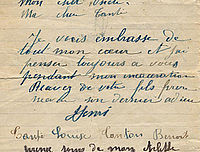 Mon cher oncle
Ma cher tante
Je vous embrasse de
tout mon cœur et j'ai
penser toujours a vous
pendant mon incarceration
Recever de votre fils pour
maman son dernier adieu
Henri
tante Louise Tonton Benoit
mon